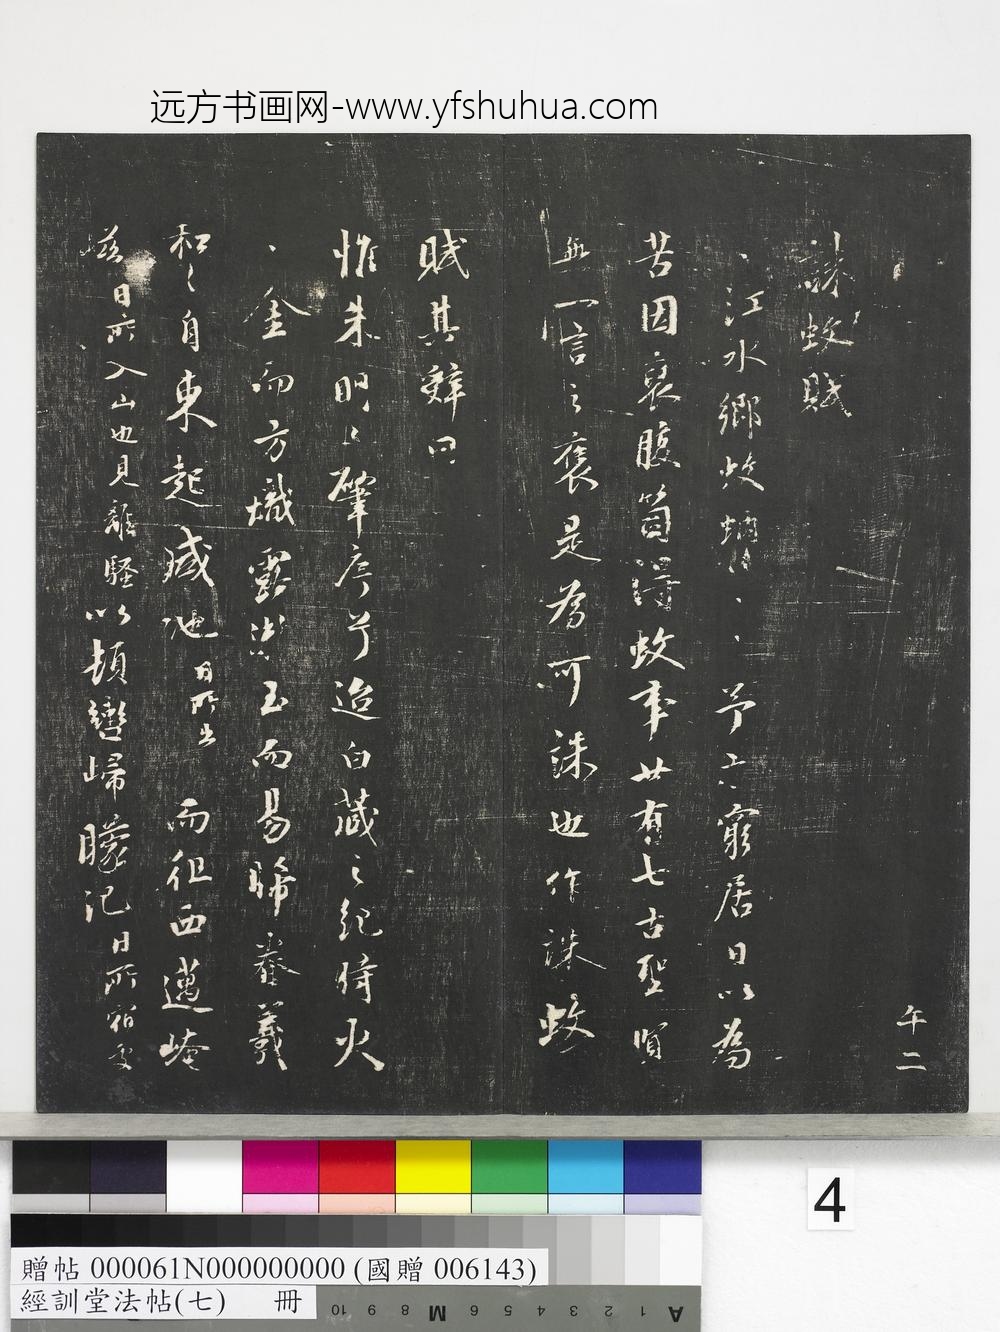 远方书画网-www.yfshuhua.com
誅蚊賦
江水鄉蚊蚋予方窮居日以為
苦因裒腹笥得蚊事廿有七古聖賢
無一言之褒是為可誅也作誅蚊
賦其辭曰
惟朱明肇序兮迨白藏之紀時火
金而方熾露湛玉而易晞羲
和之自東起咸池日所出而徂西邁崦
嵫日所入山也見離騷以頓轡歸矇汜日所宿處
午二
4
贈帖 000061N000000000 (國贈 006143)
經訓堂法帖(七) 冊
10 9 8 M 6 5 4 3 2 1 A